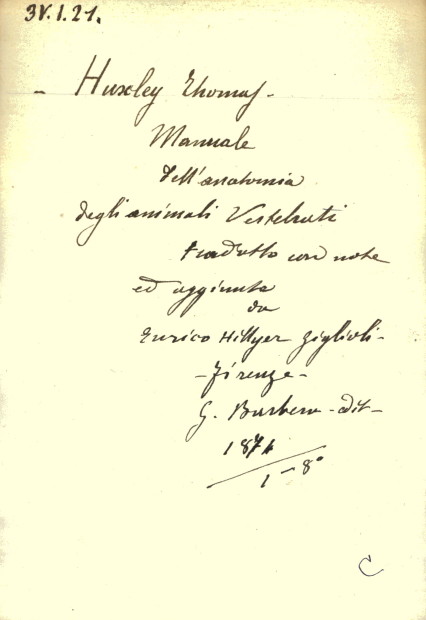 3V.I.21.
- Huxley Thomas -
Manuale
dell'anatomia
degli animali Vertebrati
tradotto con note
ed aggiunte
da
Enrico Hillyer Giglioli -
- Firenze -
G. Barbera - edit -
1874
1 - 8°
C